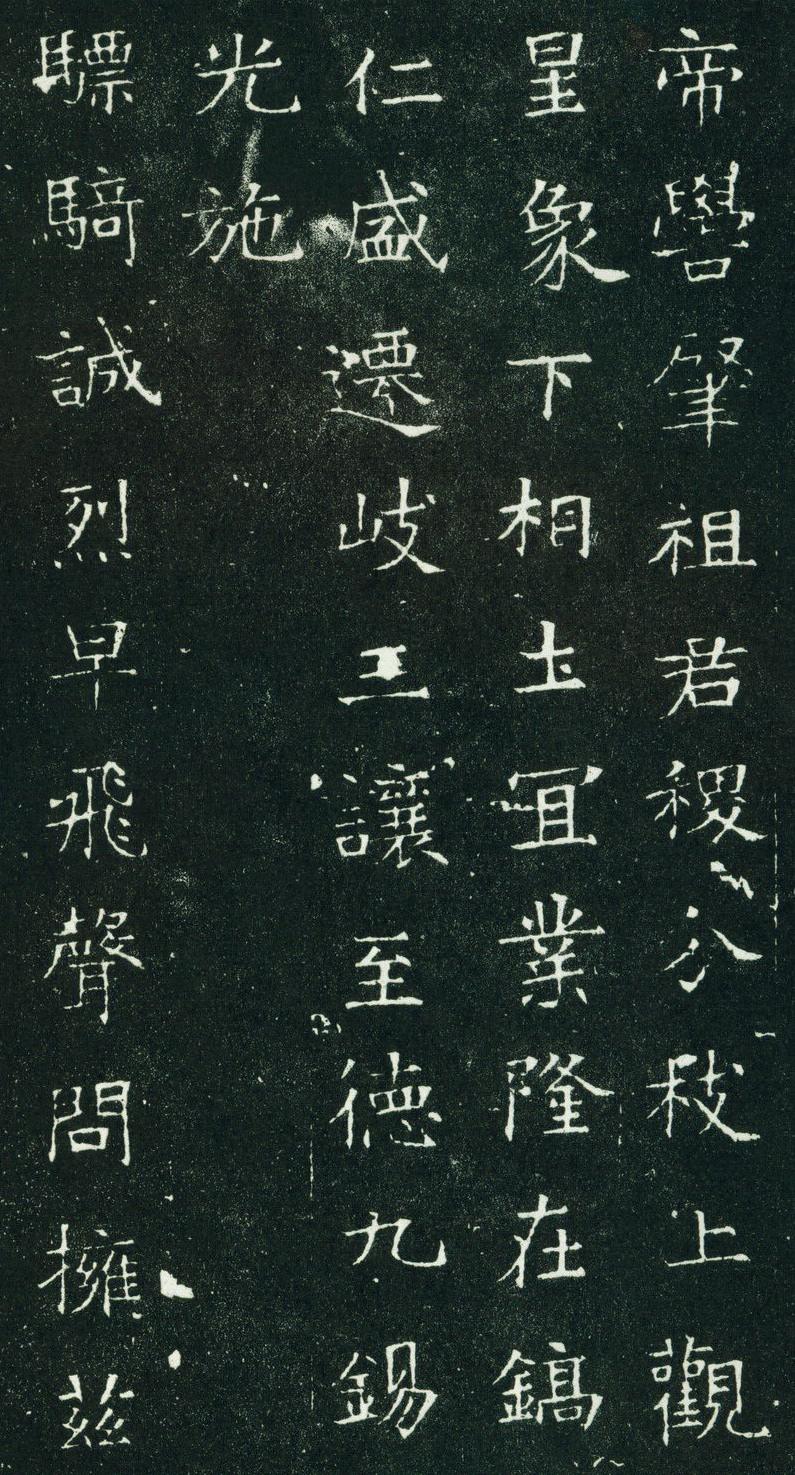 帝嚳肇祖君稷分秡上觀
星象下相土冝業隆在鎬
仁盛遷岐三讓至德九錫
光施
驃騎誠烈早飛聲問擁茲